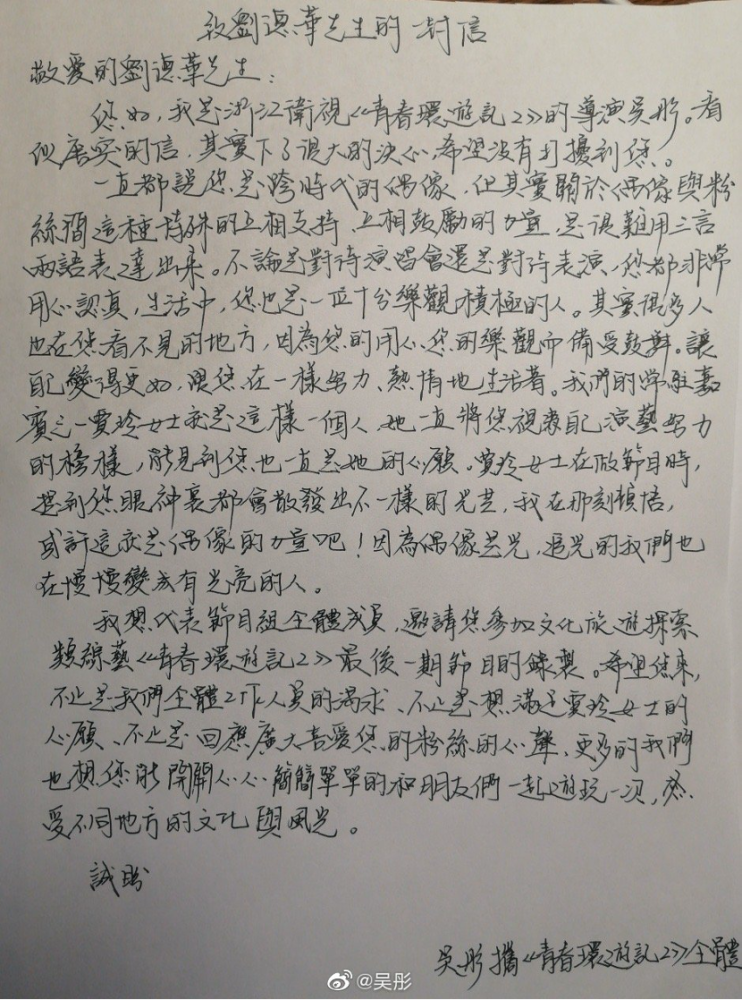 致劉德華先生的一封信
敬愛的劉德華先生：
您好，我是浙江衛視《青春環遊記2》的導演吳彤。看
似唐突的信，其實下了很大的決心，希望沒有打擾到您。
一直都說您是跨時代的偶像，但其實關於偶像與粉
絲間這種特殊的互相支持、互相鼓勵的力量，是很難用三言
兩語表達出來。不論是對待演唱會還是對待表演，您都非常
用心認真，生活中，您也是一位十分樂觀積極的人。其實很多人
也在您看不見的地方，因為您的用心、您的樂觀而備受鼓舞。讓
自己變得更好，跟您在一樣努力、熱情地生活著。我們的常駐嘉
賓之一賈玲女士就是這樣一個人，她一直將您視為自己演藝努力
的榜樣，能見到您也一直是她的心願。賈玲女士在做節目時，
提到您眼神裏都會散發出不一樣的光芒，我在那刻頓悟，
或許這就是偶像的力量吧！因為偶像是光，追光的我們也
在慢慢變成有光亮的人。
我想代表節目組全體成員，邀請您參加文化旅遊探索
類綜藝《青春環遊記2》最後一期節目的錄製。希望您來，
不止是我們全體工作人員的渴求、不止是想滿足賈玲女士的
心願、不止是回應廣大喜愛您的粉絲的心聲，更多的我們
也想您能開開心心簡簡單單的和朋友們一起遊玩一次，感
受不同地方的文化與風光。
誠盼
吳彤攜《青春環遊記2》全體
@吴彤